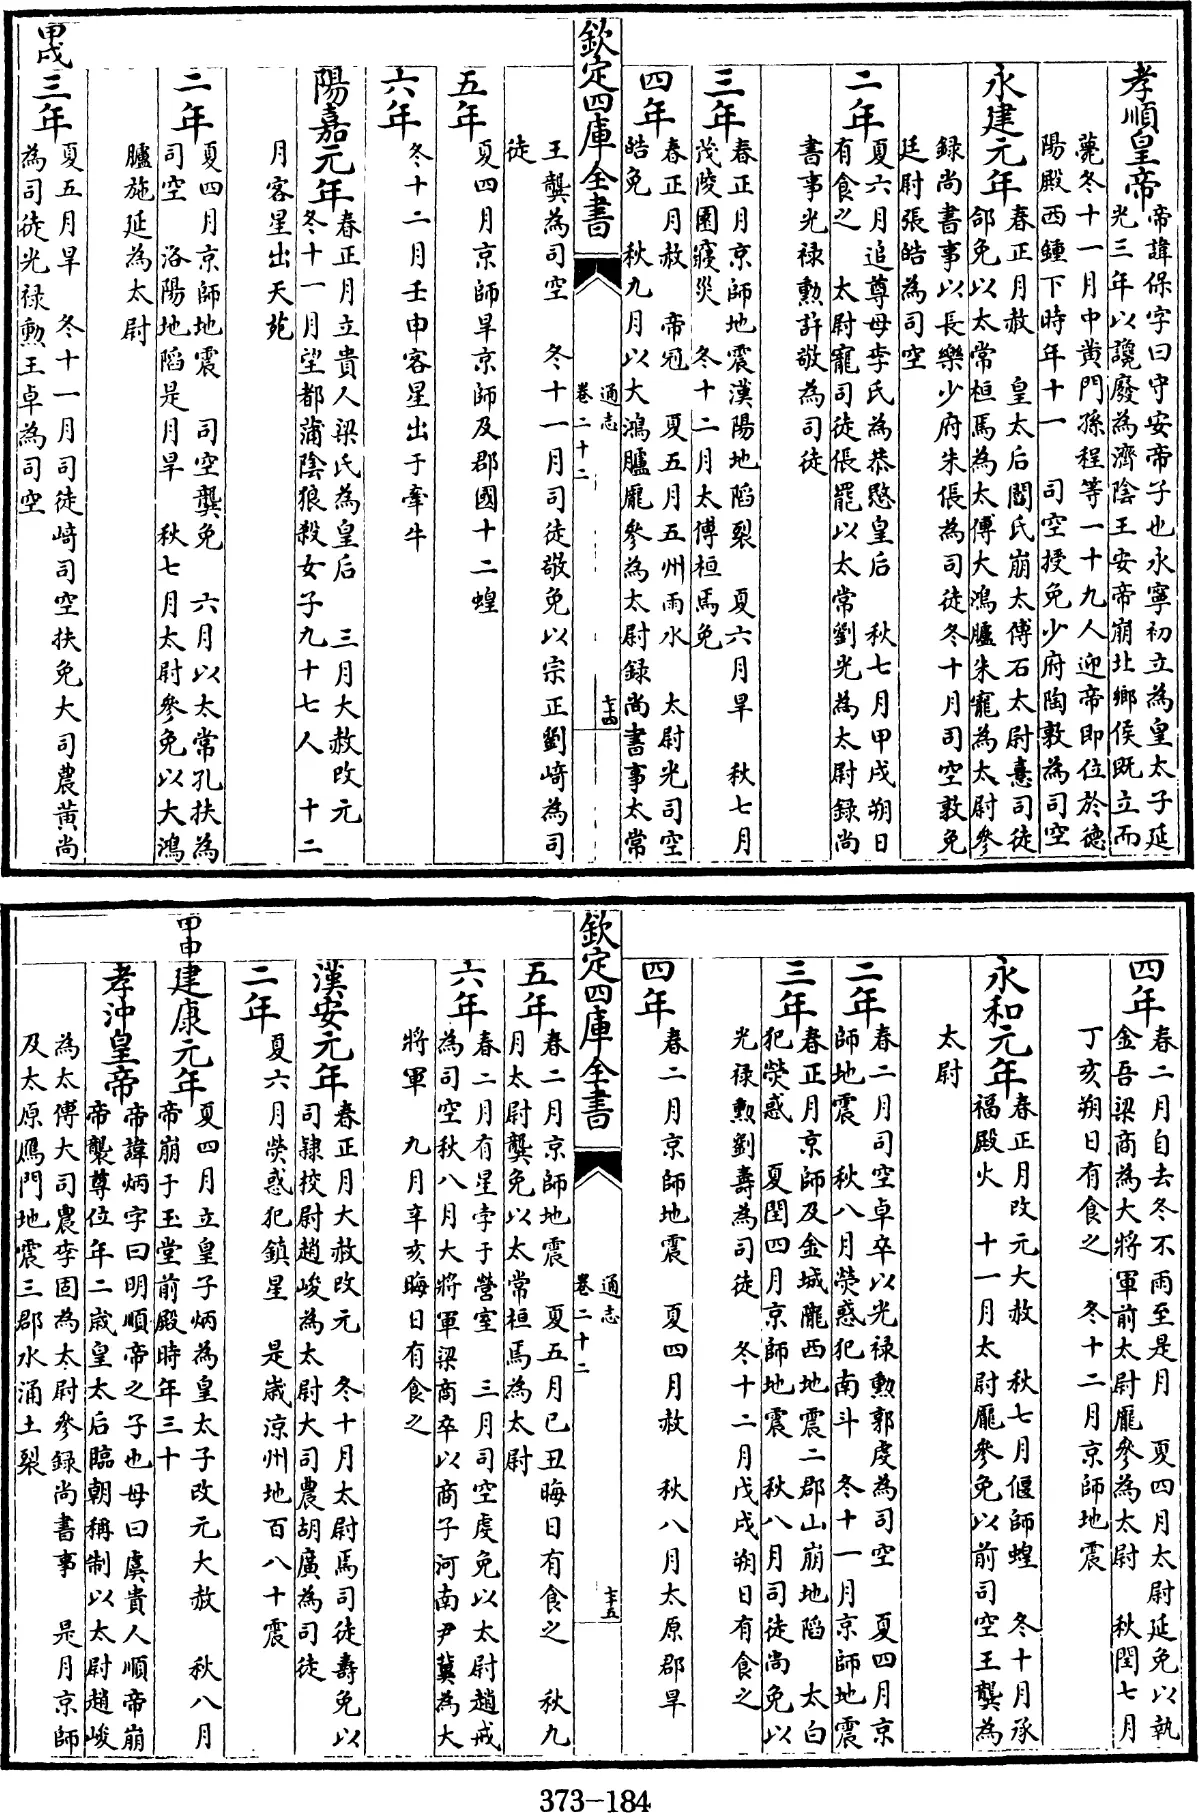 孝順皇帝
帝諱保字曰守安帝子也永寧初立為皇太子延
光三年以讒廢為濟陰王安帝崩北鄉侯既立而
薨冬十一月中黄門孫程等一十九人迎帝即位於德
陽殿西鍾下時年十一　司空授免少府陶敦為司空
永建元年
春正月赦　皇太后閻氏崩太傅石太尉憙司徒
郃免以太常桓馬為太傅大鴻臚朱寵為太尉參
録尚書事以長樂少府朱倀為司徒冬十月司空敦免
廷尉張皓為司空
二年
夏六月追尊母李氏為恭愍皇后　秋七月甲戌朔日
有食之　太尉寵司徒倀罷以太常劉光為太尉録尚
書事光禄勲許敬為司徒
三年
春正月京師地震漢陽地陷裂　夏六月旱　秋七月
茂陵園寢災　冬十二月太傅桓馬免
四年
春正月赦　帝冠　夏五月五州雨水　太尉光司空
皓免　秋九月以大鴻臚龎參為太尉録尚書事太常
欽定四庫全書
通志
卷二十二
七十四
王龔為司空　冬十一月司徒敬免以宗正劉﨑為司
徒
五年
夏四月京師旱京師及郡國十二蝗
六年
冬十二月壬申客星出于牽牛
陽嘉元年
春正月立貴人梁氏為皇后　三月大赦改元
冬十一月望都蒲陰狼殺女子九十七人　十二
月客星出天苑
二年
夏四月京師地震　司空龔免　六月以太常孔扶為
司空　洛陽地陷是月旱　秋七月太尉參免以大鴻
臚施延為太尉
甲戌
三年
夏五月旱　冬十一月司徒﨑司空扶免大司農黄尚
為司徒光禄勲王卓為司空
四年
春二月自去冬不雨至是月　夏四月太尉延免以執
金吾梁商為大將軍前太尉龎參為太尉　秋閏七月
丁亥朔日有食之　冬十二月京師地震
永和元年
春正月改元大赦　秋七月偃師蝗　冬十月承
福殿火　十一月太尉龎參免以前司空王龔為
太尉
二年
春二月司空卓卒以光禄勲郭虔為司空　夏四月京
師地震　秋八月熒惑犯南斗　冬十一月京師地震
三年
春正月京師及金城隴西地震二郡山崩地陷　太白
犯熒惑　夏閏四月京師地震　秋八月司徒尚免以
光禄勲劉壽為司徒　冬十二月戊戌朔日有食之
四年
春二月京師地震　夏四月赦　秋八月太原郡旱
欽定四庫全書
通志
卷二十二
七十五
五年
春二月京師地震　夏五月已丑晦日有食之　秋九
月太尉龔免以太常桓馬為太尉
六年
春二月有星孛于營室　三月司空虔免以太尉趙戒
為司空秋八月大將軍梁商卒以商子河南尹冀為大
將軍　九月辛亥晦日有食之
漢安元年
春正月大赦改元　冬十月太尉馬司徒壽免以
司隸校尉趙峻為太尉大司農胡廣為司徒
二年
夏六月熒惑犯鎮星　是歲涼州地百八十震
甲申
建康元年
夏四月立皇子炳為皇太子改元大赦　秋八月
帝崩于玉堂前殿時年三十
孝沖皇帝
帝諱炳字曰明順帝之子也母曰虞貴人順帝崩
帝襲尊位年二歲皇太后臨朝稱制以太尉趙峻
為太傅大司農李固為太尉參録尚書事　是月京師
及太原鴈門地震三郡水涌土裂
373-184